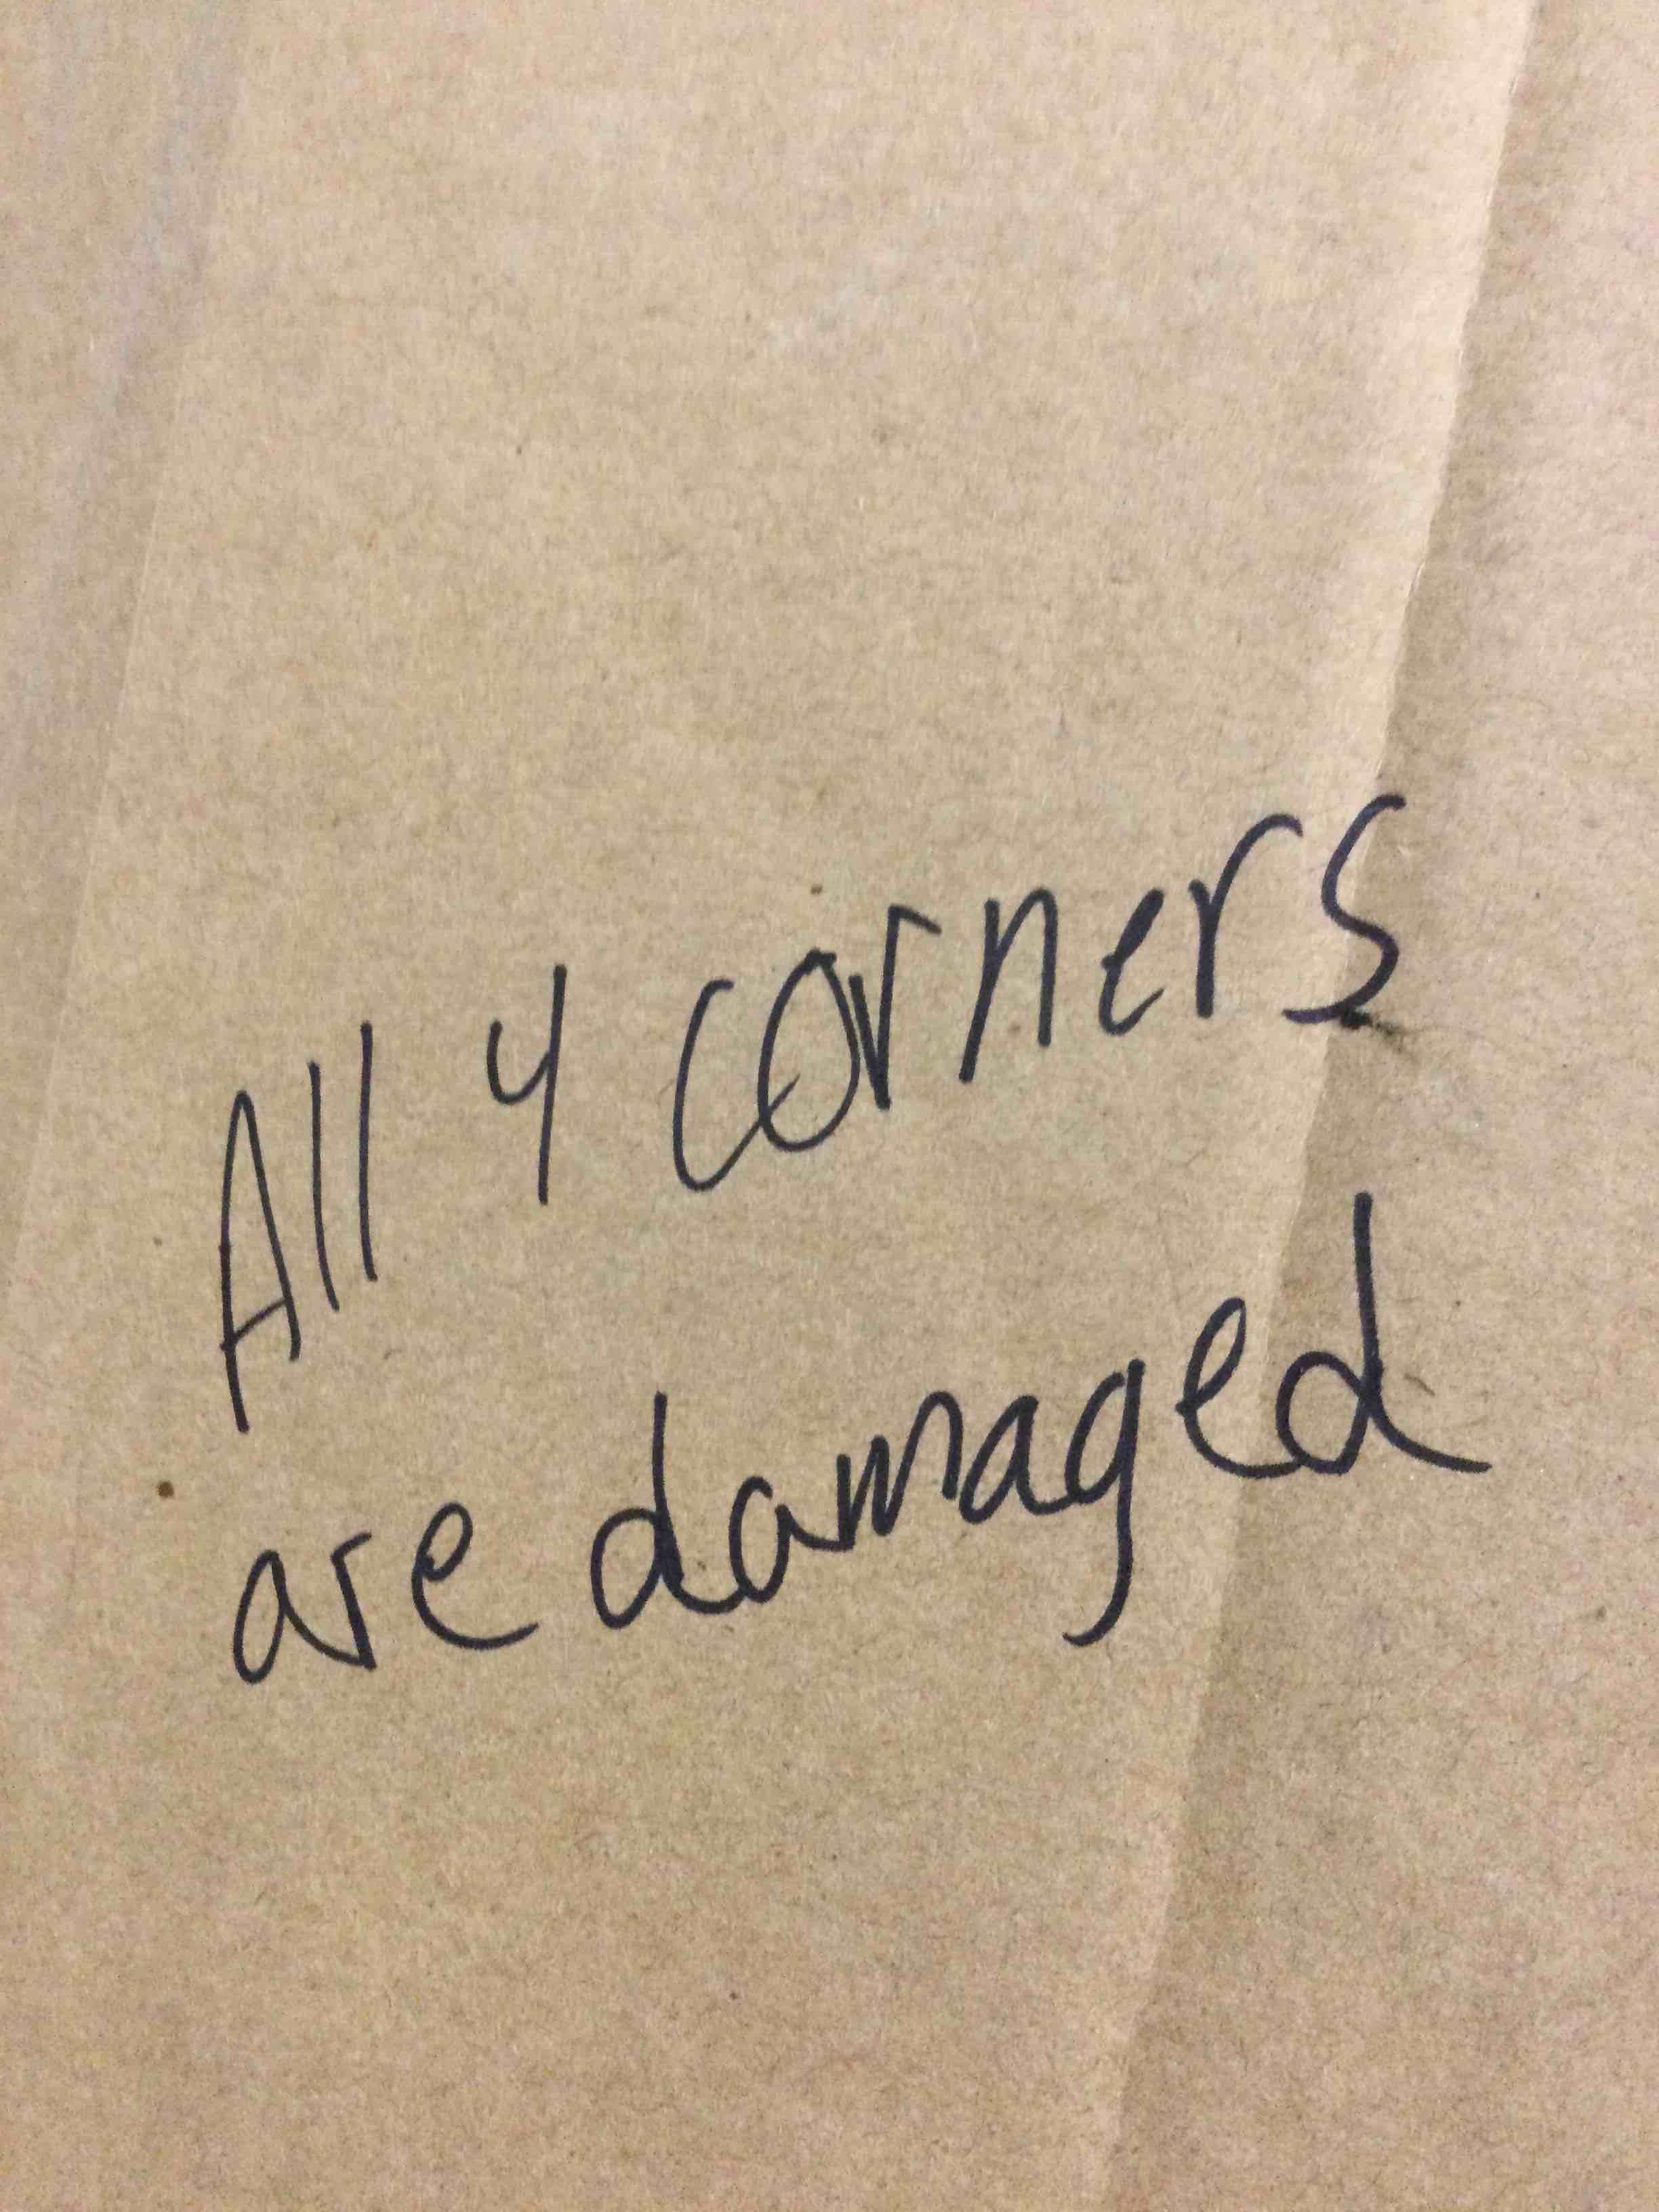 All 4 corners
are damaged